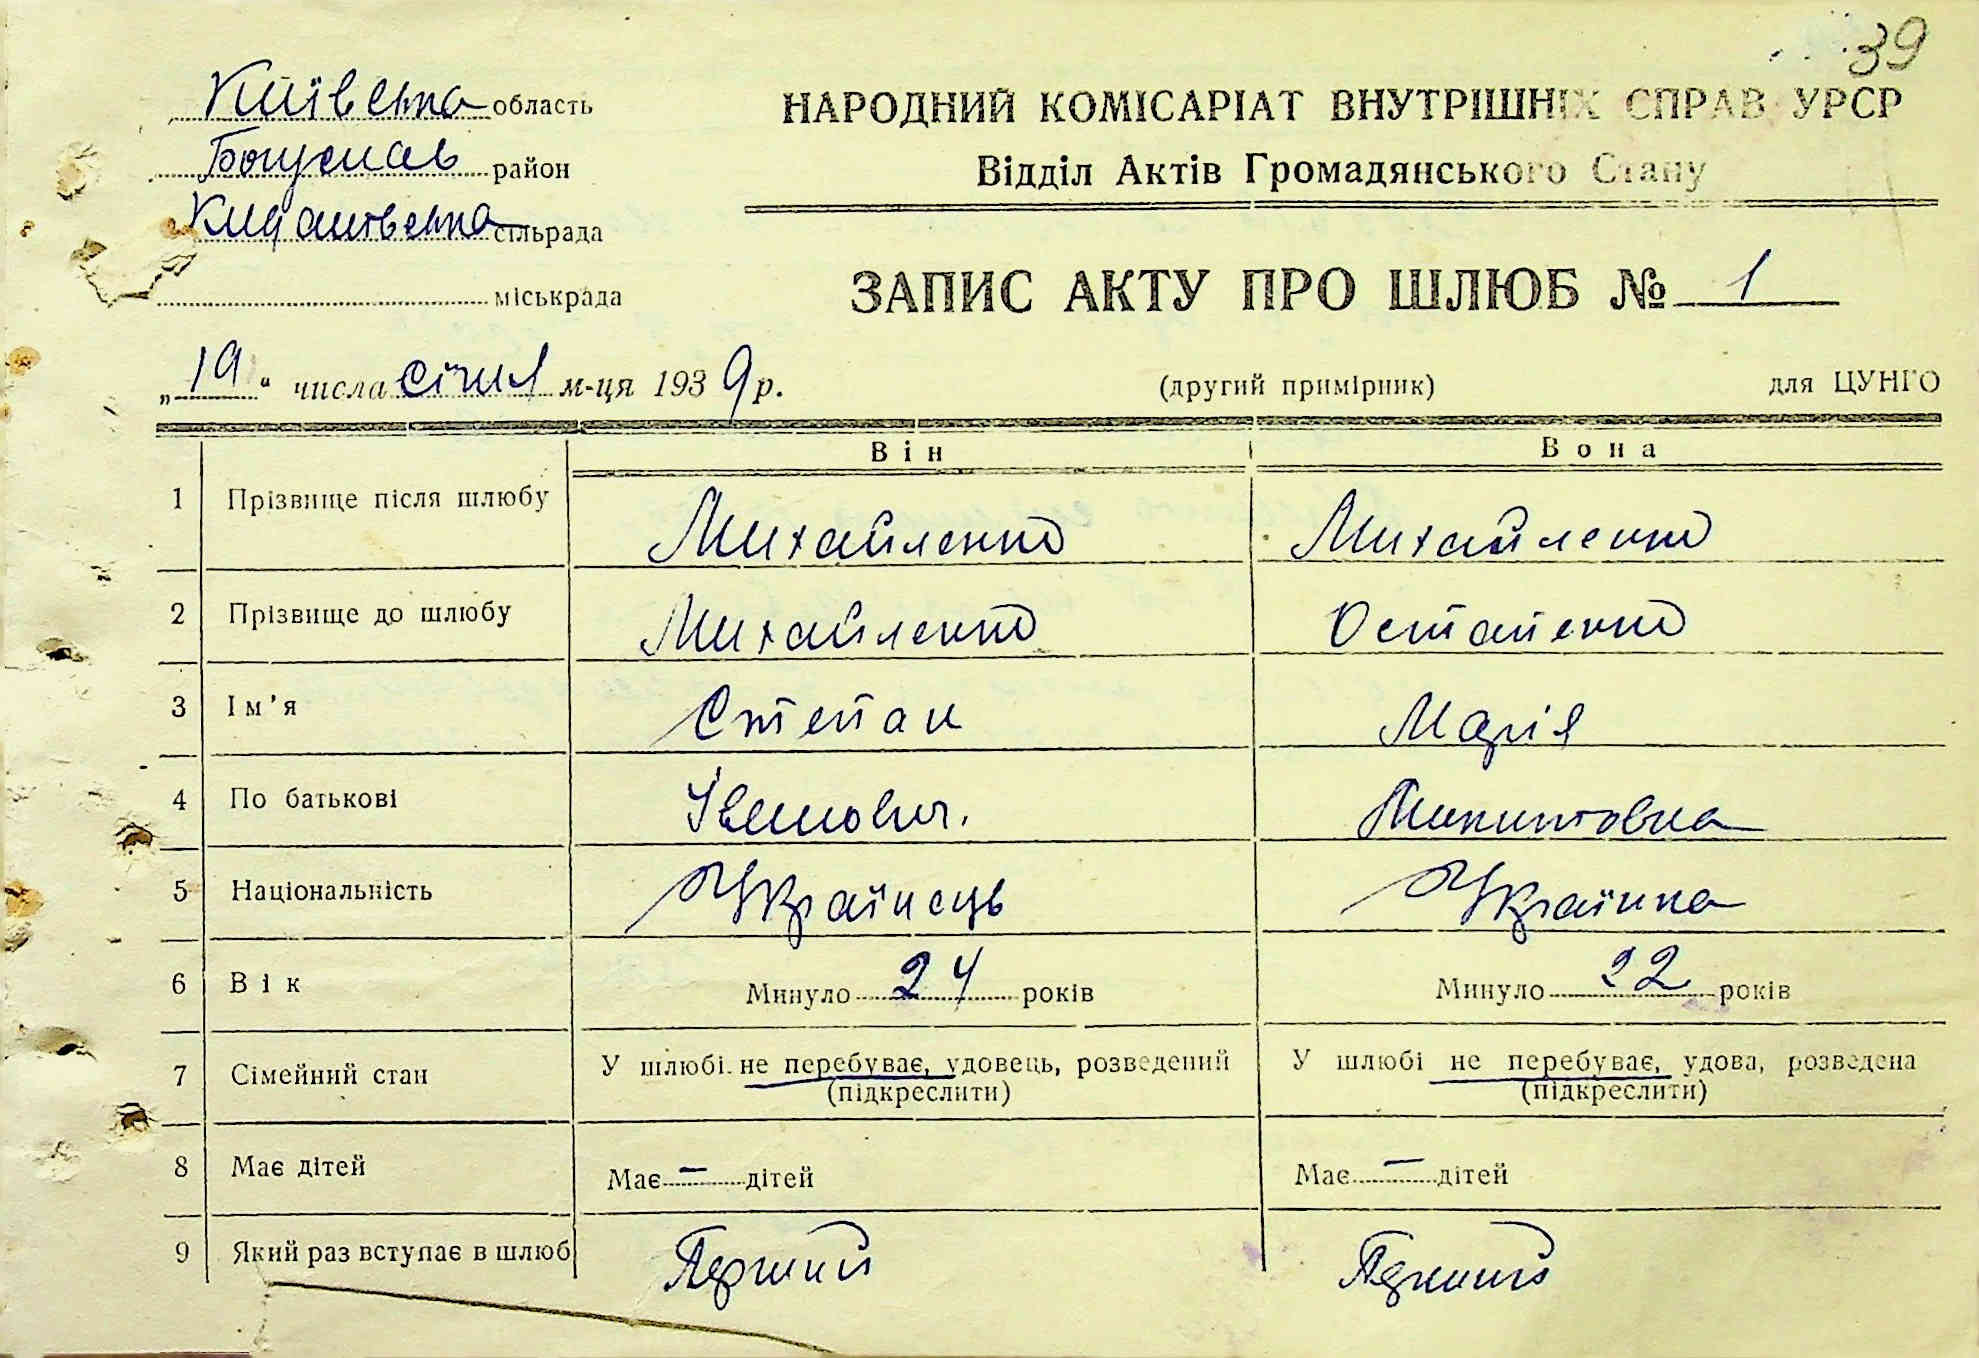 39
Київська область
Богуслав район
сільрада
міськрада
НАРОДНИЙ КОМІСАРІАТ ВНУТРІШНІХ СПРАВ УРСР
Відділ Актів Громадянського Стану
ЗАПИС АКТУ ПРО ШЛЮБ № 1
„19“ числа січня м-ця 1939 р. (другий примірник) для ЦУНГО
Він Вона
1 Прізвище після шлюбу Михайленко Михайленко
2 Прізвище до шлюбу Михайленко Остапенко
3 Ім'я Степан Марія
4 По батькові Іванович. Микитовна
5 Національність Українець Українка
6 Вік Минуло 24 років Минуло 22 років
7 Сімейний стан У шлюбі не перебуває, удовець, розведений У шлюбі не перебуває, удова, розведена
(підкреслити) (підкреслити)
8 Має дітей Має — дітей Має — дітей
9 Який раз вступає в шлюб Перший Перший